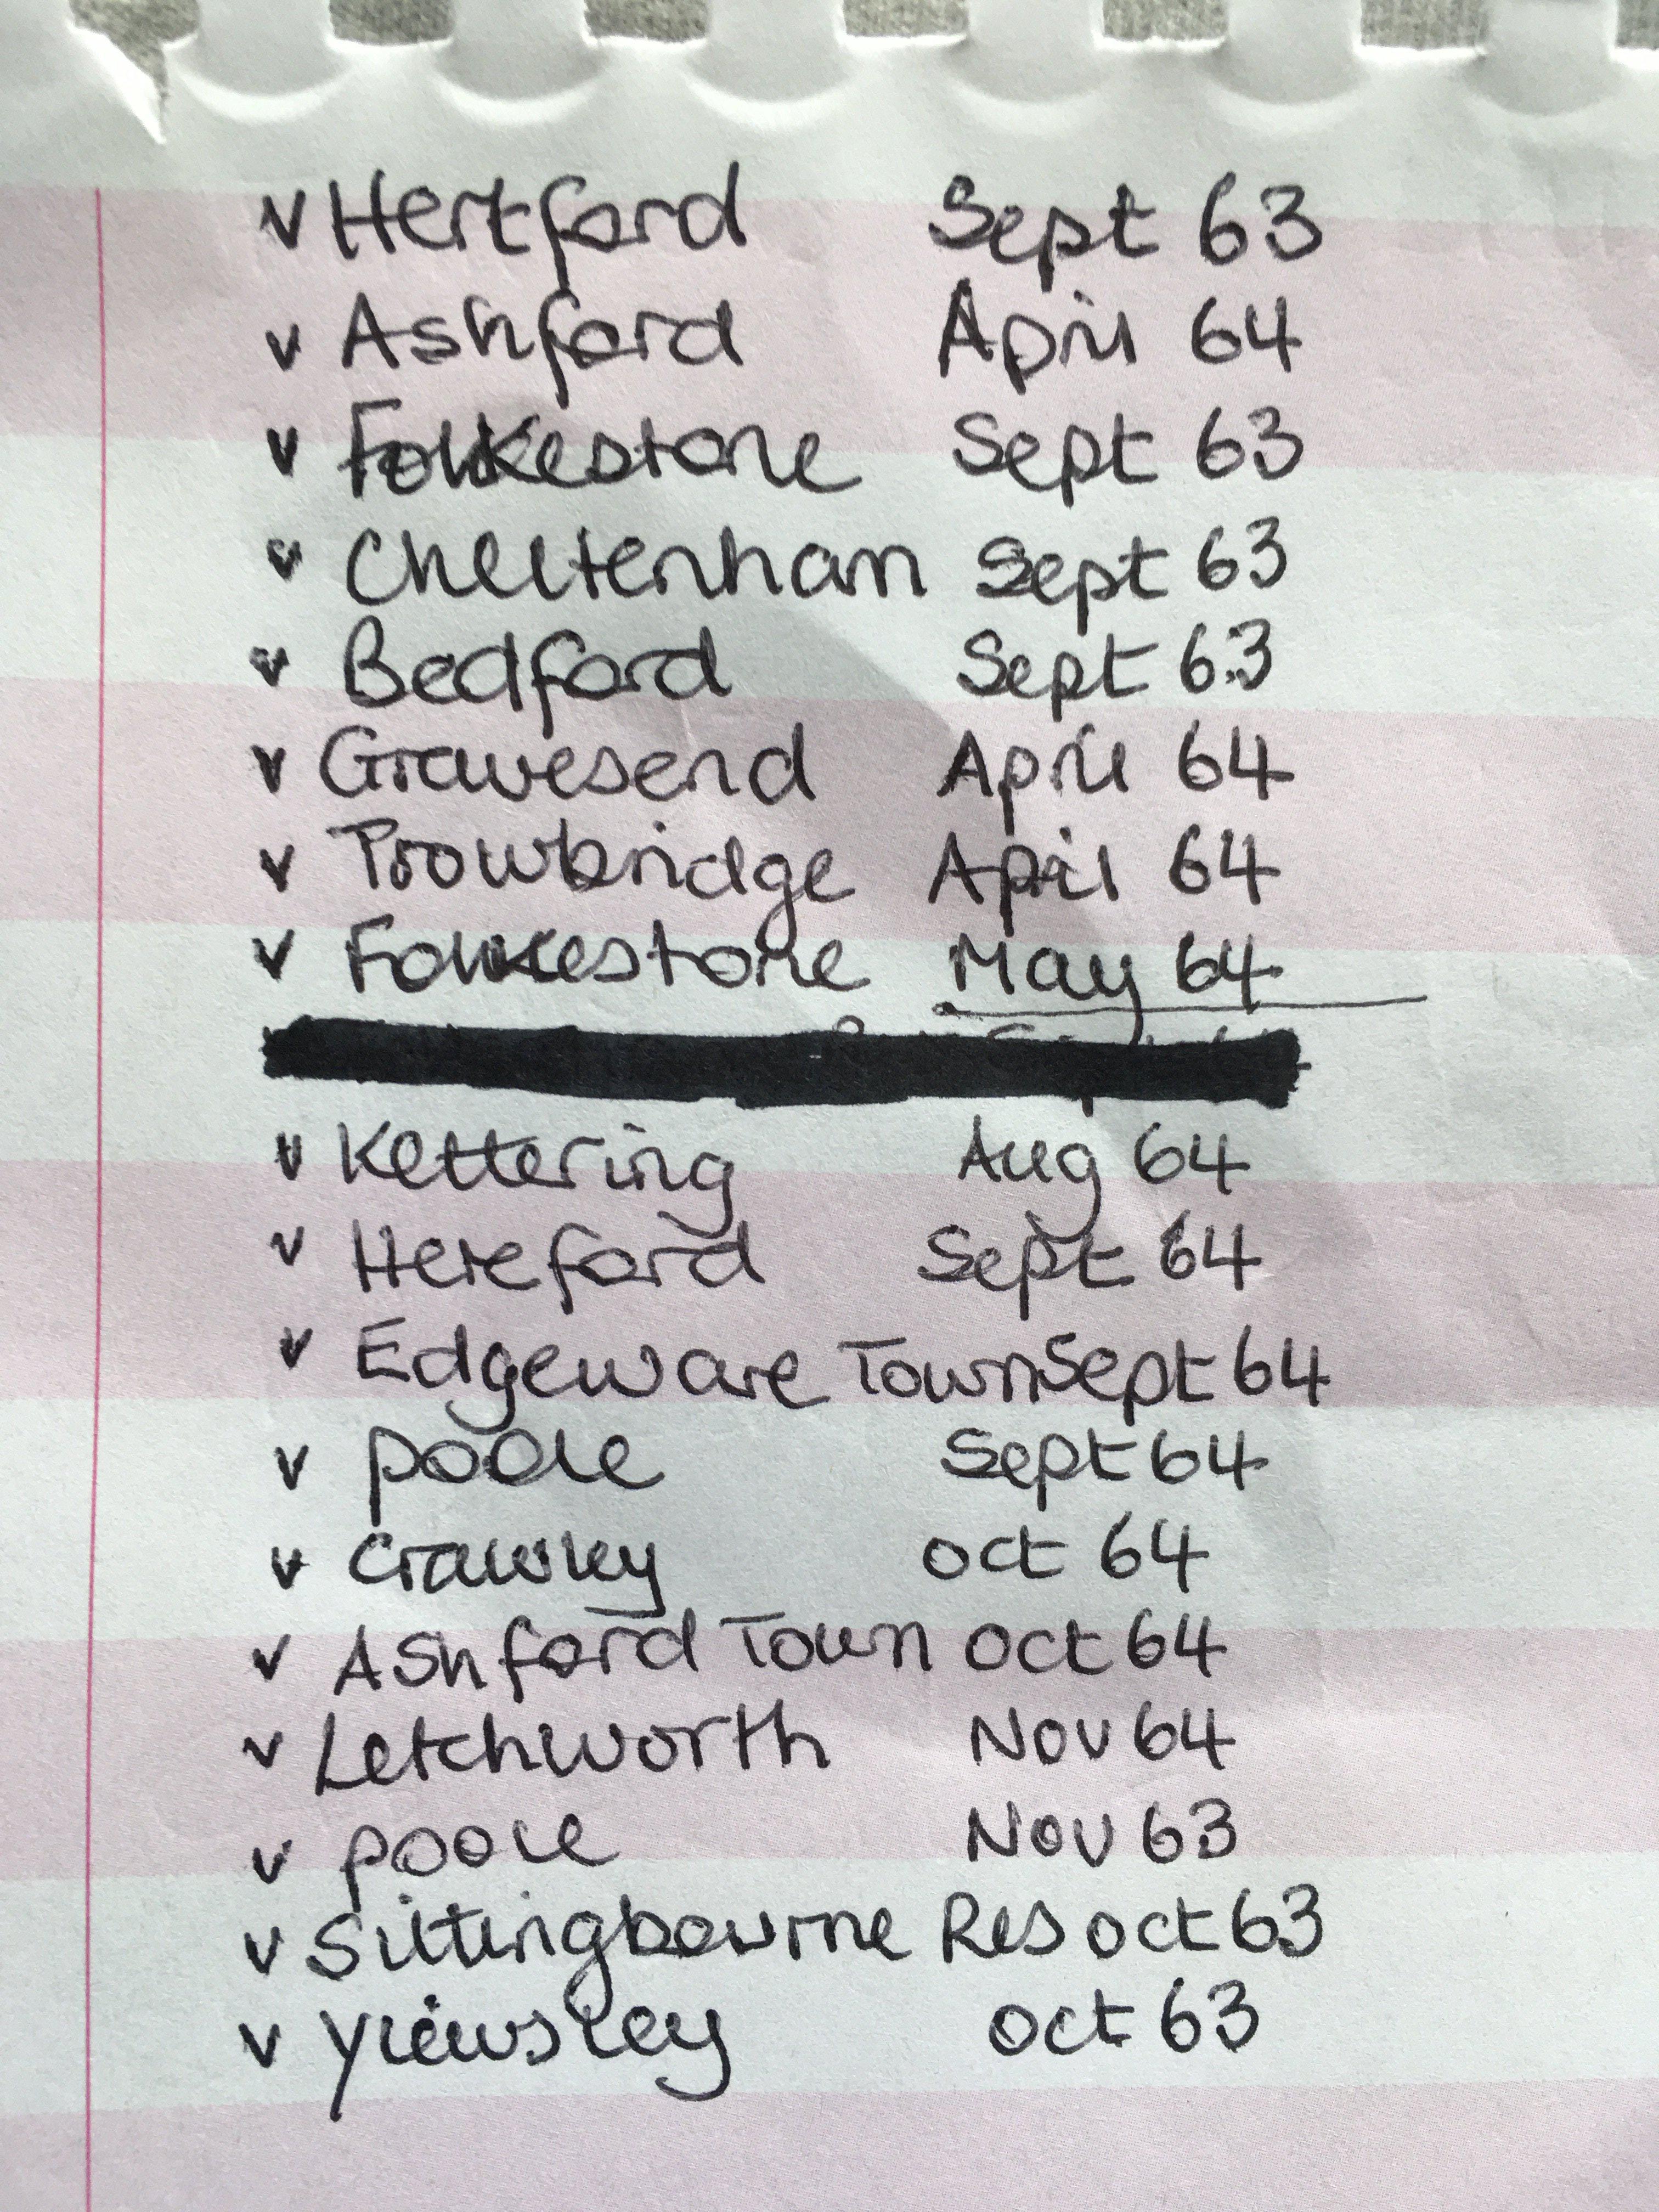 v Hertford Sept 63
v Ashford April 64
v Folkestone Sept 63
v Cheltenham Sept 63
v Bedford Sept 63
v Gravesend April 64
v Trowbridge April 64
v Folkestone May 64
v Kettering Aug 64
v Hereford Sept 64
v Edgeware Town Sept 64
v Poole Sept 64
v Crawley Oct 64
v Ashford Town Oct 64
v Letchworth Nov 64
v Poole Nov 63
v Sittingbourne Res Oct 63
v Yiewsley Oct 63